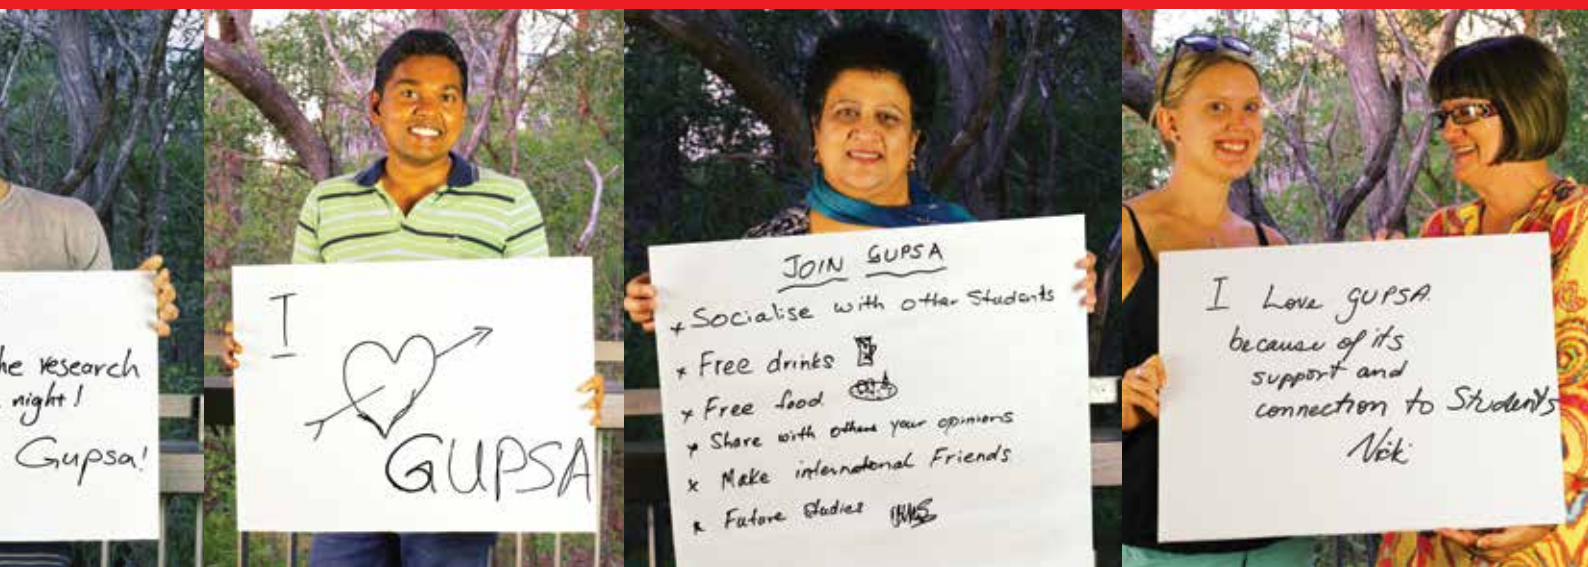 he research
night!
Gupsa!
I
GUPSA
JOIN GUPSA
x Socialise with other Students
x Free drinks
x Free food
x Share with others your opinions
x Make international Friends
x Future Studies
I Love GUPSA.
because of its
support and
connection to Students
Nicki